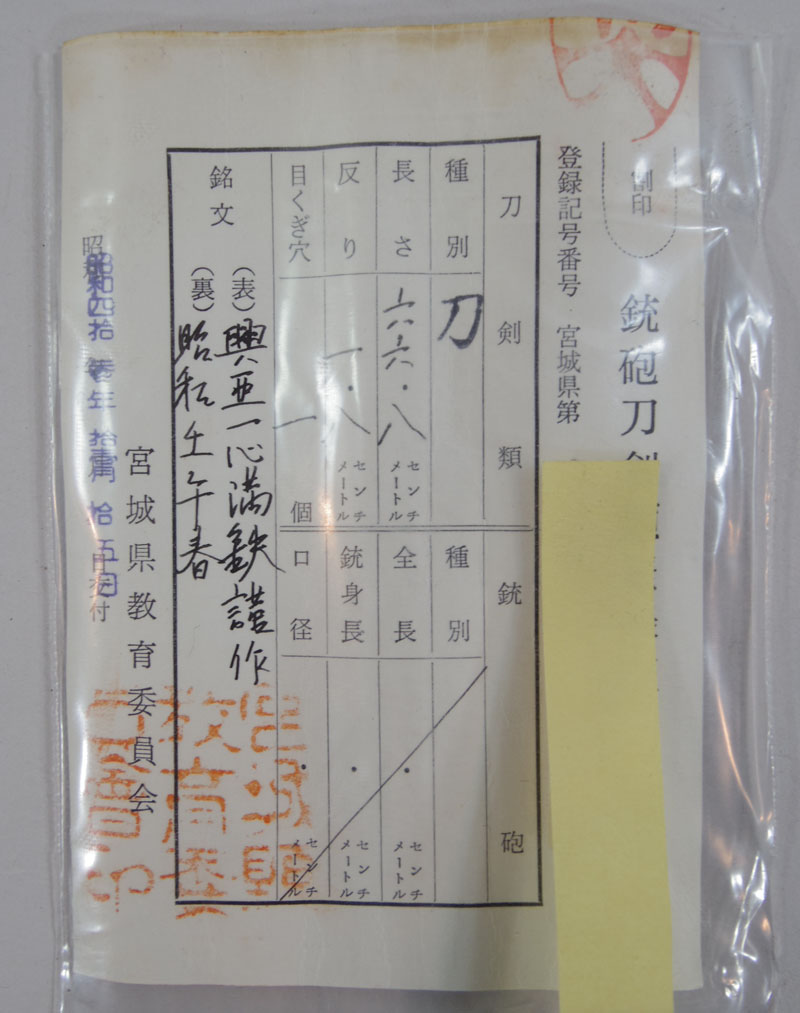 割印
銃砲刀剣
登録記号番号 宮城県第
刀剣類
銃砲
種別 刀
種別
長さ 六六・八 センチメートル
全長 ・ センチメートル
反り 一・八 センチメートル
銃身長 ・ センチメートル
目くぎ穴 一個
口径 ・ センチメートル
銘文
(表)興亜一心満鉄謹作
(裏)昭和壬午春
宮城県教育委員会